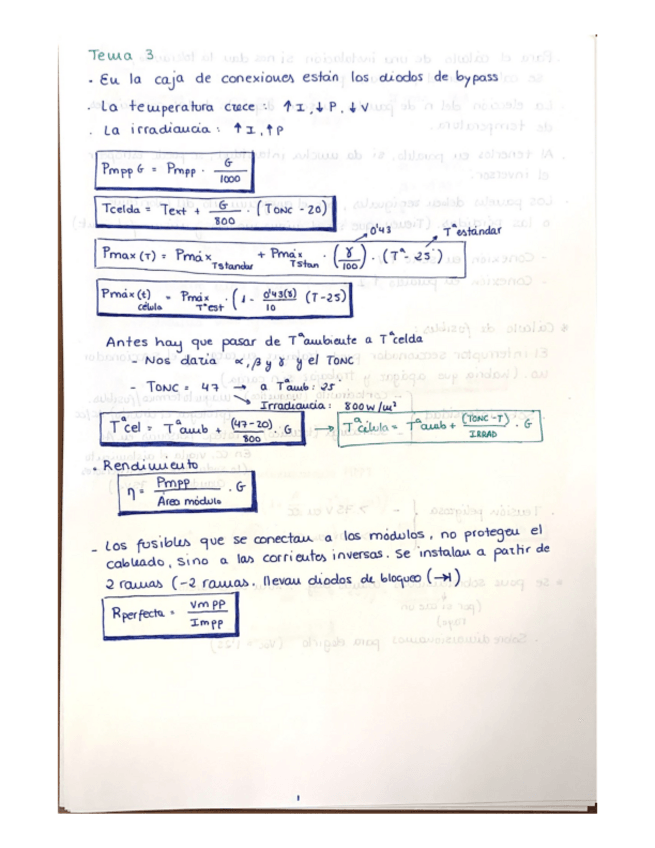 Tema 3
. En la caja de conexiones están los diodos de bypass
. La temperatura crece: ↑I, ↓P, ↓V
. La irradiancia: ↑I, ↑P
Pmpp G = Pmpp · G/1000
Tcelda = Text + G/800 · (TONC - 20)
0'43 Tª estándar
Pmax(T) = Pmáx Tstandar + Pmáx Tstan · (γ/100) · (Tª - 25)
Pmáx(t) célula = Pmáx Tªest · (1 - 0'43(γ)/10 (T-25)
Antes hay que pasar de Tªambiente a Tªcelda
- Nos daría α, β y γ y el TONC
- TONC = 47 → a Tªamb: 25
Irradiancia: 800 w/m²
Tªcel = Tªamb + (47-20)/800 · G → Tªcélula = Tªamb + (TONC-T)/IRRAD · G
• Rendimiento
η = Pmpp/Área módulo · G
- Los fusibles que se conectan a los módulos, no protegen el
cableado, sino a las corrientes inversas. Se instalan a partir de
2 ramas (-2 ramas. llevan diodos de bloqueo (→|)
Rperfecta = Vmpp/Impp